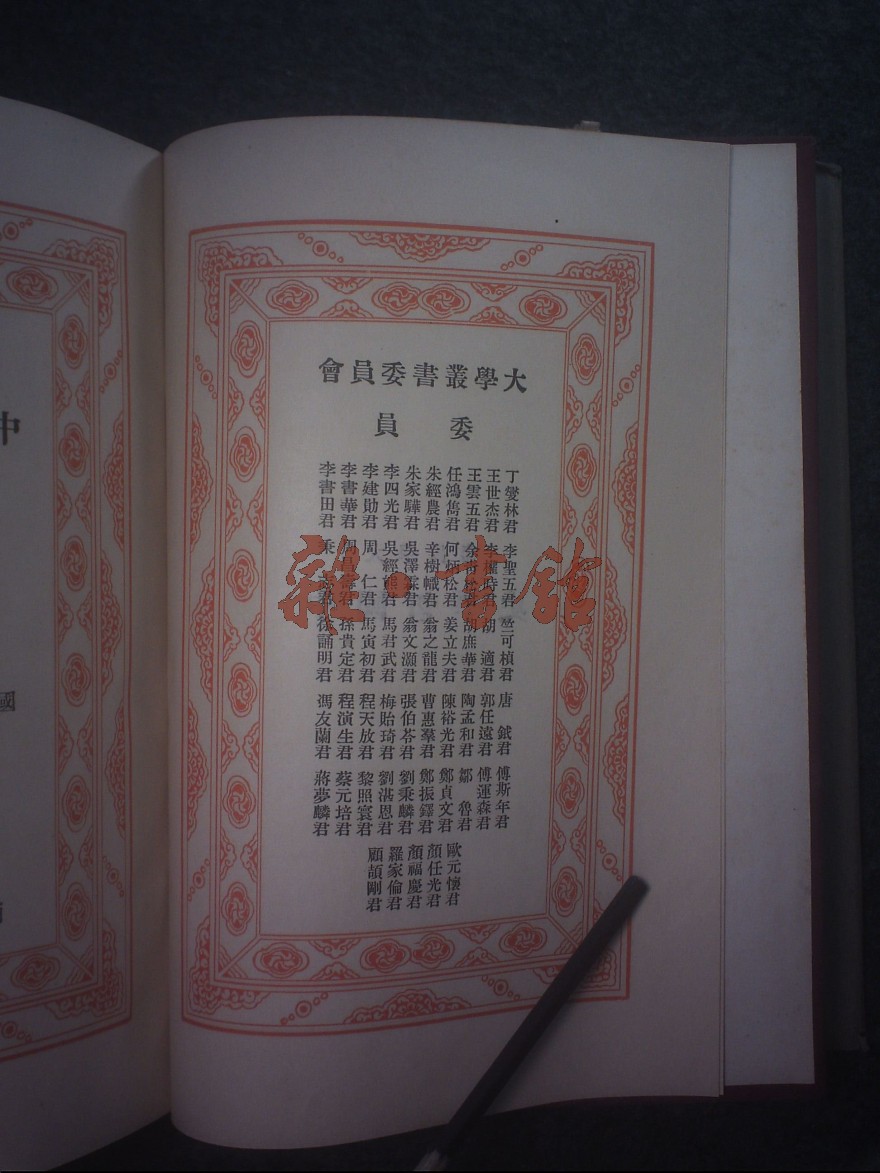 大學叢書委員會
委員
丁燮林君
王世杰君
王雲五君
任鴻雋君
朱經農君
朱家驊君
李四光君
李建勛君
李書華君
李書田君
李聖五君
李權時君
余青松君
何炳松君
辛樹幟君
吳澤霖君
吳經熊君
周 仁君
周昌壽君
秉 志君
竺可楨君
胡 適君
胡庶華君
姜立夫君
翁之龍君
翁文灝君
馬君武君
馬寅初君
孫貴定君
徐誦明君
唐 鉞君
郭任遠君
陶孟和君
陳裕光君
曹惠羣君
張伯苓君
梅貽琦君
程天放君
程演生君
馮友蘭君
傅斯年君
傅運森君
鄒 魯君
鄭貞文君
鄭振鐸君
劉秉麟君
劉湛恩君
黎照寰君
蔡元培君
蔣夢麟君
歐元懷君
顏任光君
顏福慶君
羅家倫君
顧頡剛君
中
國
雜·书館